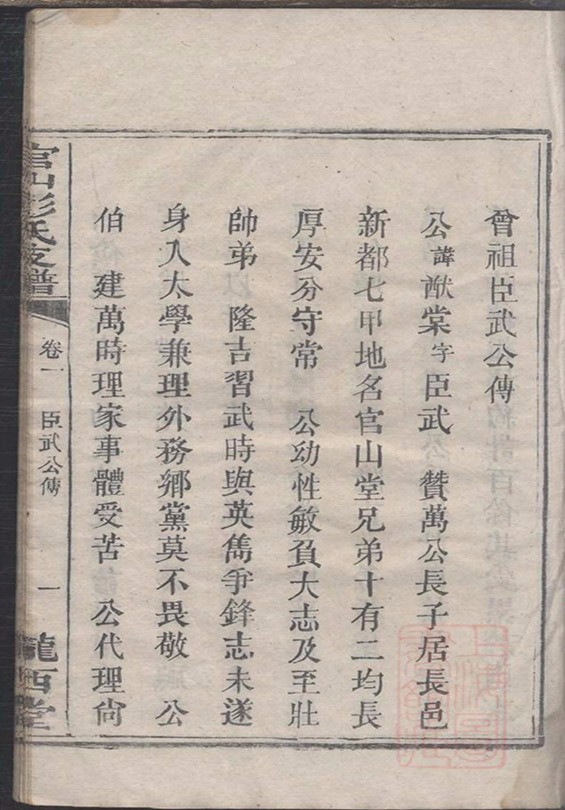 曾祖臣武公傳
公諱猷棠字臣武 贊萬公長子居長邑
新都七甲地名官山堂兄弟十有二均長
厚安分守常 公幼性敏負大志及至壯
帥弟 隆吉習武時與英雋爭鋒志未遂
身入太學兼理外務鄉黨莫不畏敬 公
伯 建萬時理家事體受苦 公代理尙
官山彭氏支譜
卷一
臣武公傳
一
隴西堂